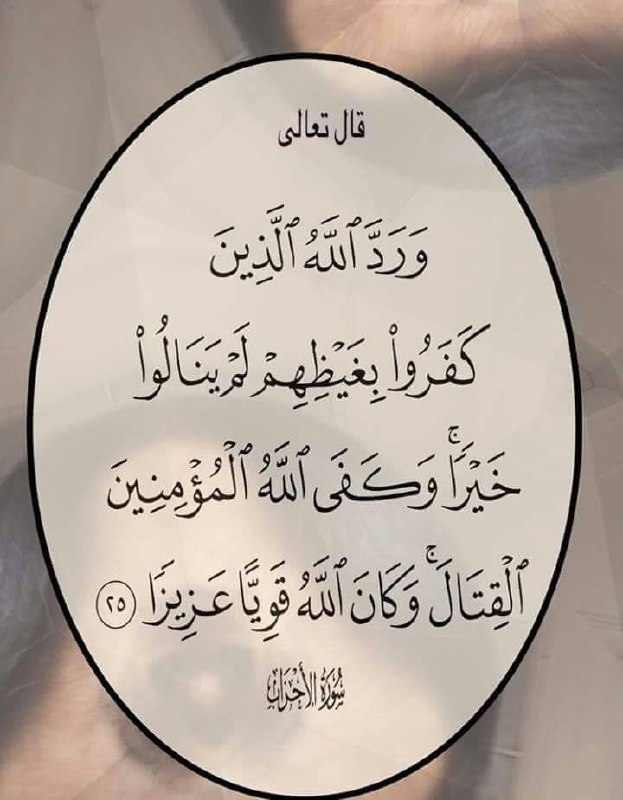 قال تعالى
وَرَدَّ ٱللَّهُ ٱلَّذِينَ
كَفَرُوا۟ بِغَيْظِهِمْ لَمْ يَنَالُوا۟
خَيْرًاۚ وَكَفَى ٱللَّهُ ٱلْمُؤْمِنِينَ
ٱلْقِتَالَۚ وَكَانَ ٱللَّهُ قَوِيًّا عَزِيزًا ٢٥
سُورَةُ الأَحْزَابِ